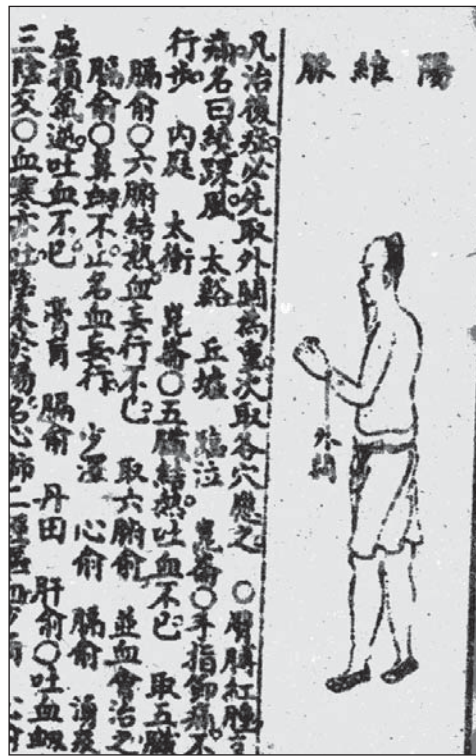 陽維脉
外關
凡治後症必先取外關為重次取各穴應之 ○臂膊紅腫支
痛名曰繞踝風 太谿 丘墟 臨泣 崑崙○手指節痛不
行步 內庭 太衝 崑崙○五臟結熱吐血不已 取五臟
膈俞○六腑結熱血妄行不已 取六腑俞 並血會治之
膈俞○鼻衂不止名血妄行 少澤 心俞 膈俞 湧泉
虛損氣逆吐血不已 膏肓 膈俞 丹田 肝俞○吐血衂
三陰交○血寒亦吐陰乘於陽名心肺二經嘔血少商 心俞